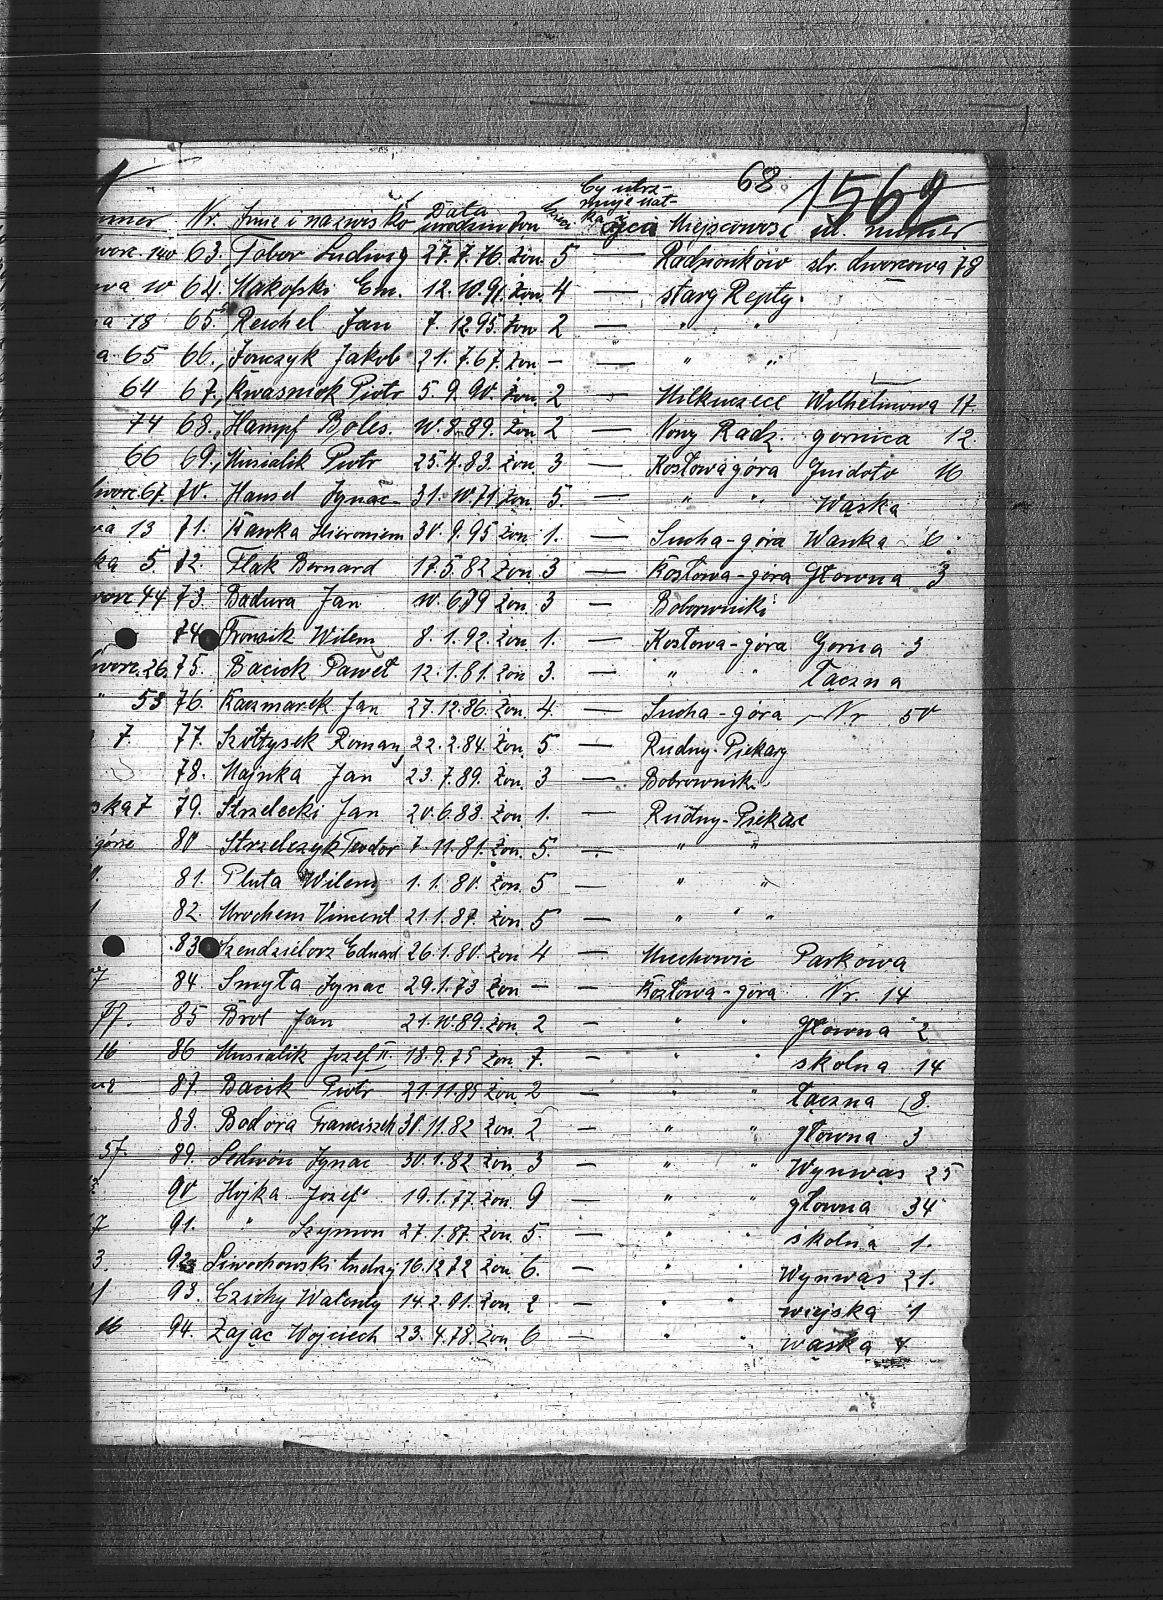 68 1562
czy utrz-
muje mat-
Nr. Imie i nazwisko Data urodzin żon matka i ojca Miejscowosc ul. numer
worc. 140 63. Gobor Ludwig 27.7.76. żon. 5 — Radzionków str. dworcowa 78
wa 10 64. Makoski Em. 12.10.91. żon. 4 — starg Repty.
a 18 65. Reichel Jan 7.12.95. żon 2 — " "
a. 65 66. Jonczyk Jakob 21.7.67. żon — — " "
64 67. Kwasniok Piotr 5.9.90. żon. 2 — Milkuczece Wilhelmowa 17.
74 68. Hampf Boles. 10.8.89. żon 2 — Nowy Radz. gornica 12.
66 69. Musialik Piotr 25.4.83. żon. 3 — Kosłowagóra Guidoto 16
worc. 67. 70. Hansel Ignac 31.10.71 żon 5. — " " Wąska
wa 13 71. Hawka Hieroniem 30.9.95 żon. 1. — Sucha-góra Wanka 6.
ka 5. 72. Flak Bernard 17.5.82 żon. 3 — Kosłowa-góra Głowna 3
worc 44 73. Badura Jan 10.6.89 żon. 3 — Bobrowniki
74. Fronzik Wilem 8.1.92. żon 1. — Kosłowa-góra Gorna 3
worc. 26. 75. Bacick Paweł 12.1.81. żon 3. — " " Łączna
" 53 76. Kaczmarek Jan 27.12.86. żon. 4. — Sucha-góra Nr. 50
7. 77. Szołtysek Roman 22.2.84. żon. 5 — Rudny-Piekary
78. Majnka Jan 23.7.89. żon. 3 — Bobrownik
ska 7 79. Strzelecki Jan 20.6.83. żon 1. — Rudny-Piekare
górze 80 Strzelczyk Teodor 7.11.81. żon. 5. — " "
81. Pluta Wilem 1.1.80. żon. 5 — " "
82. Mrochem Vincent 21.1.87. żon 5 — " " "
83. Szendzielorz Eduard 26.1.80. żon 4 — Miechowic Parkowa
7 84. Smyła Ignac 29.1.73 żon — — Kozłowa-góra Nr. 14
77. 85 Brol Jan 21.10.89. żon. 2 — " " Głowna 2
16 86 Musialik Jozef II. 18.9.75 żon. 7. — " " skolna 14
87. Bacik Piotr 21.11.85 żon. 2 — " " Łączna 8.
88. Bodora Franciszek 30.11.82 żon. 2 — " " głowna 3
57. 89. Ledwon Ignac 30.1.82 żon. 3 — " " Wynwas 25
90 Hojka Jozef 19.1.77. żon. 9 — " " głowna 34
7 91. " Szymon 27.1.87. żon. 5. — " " skolna 1.
3. 92 Siwochowski Andrzy 16.12.72 żon. 6. — " " Wynwas 21.
1 93. Czichy Walenty 14.2.91. żon. 2 — " " wiejska 1
16 94. Zając Wojciech 23.4.78. żon. 6 — " " wąska 4